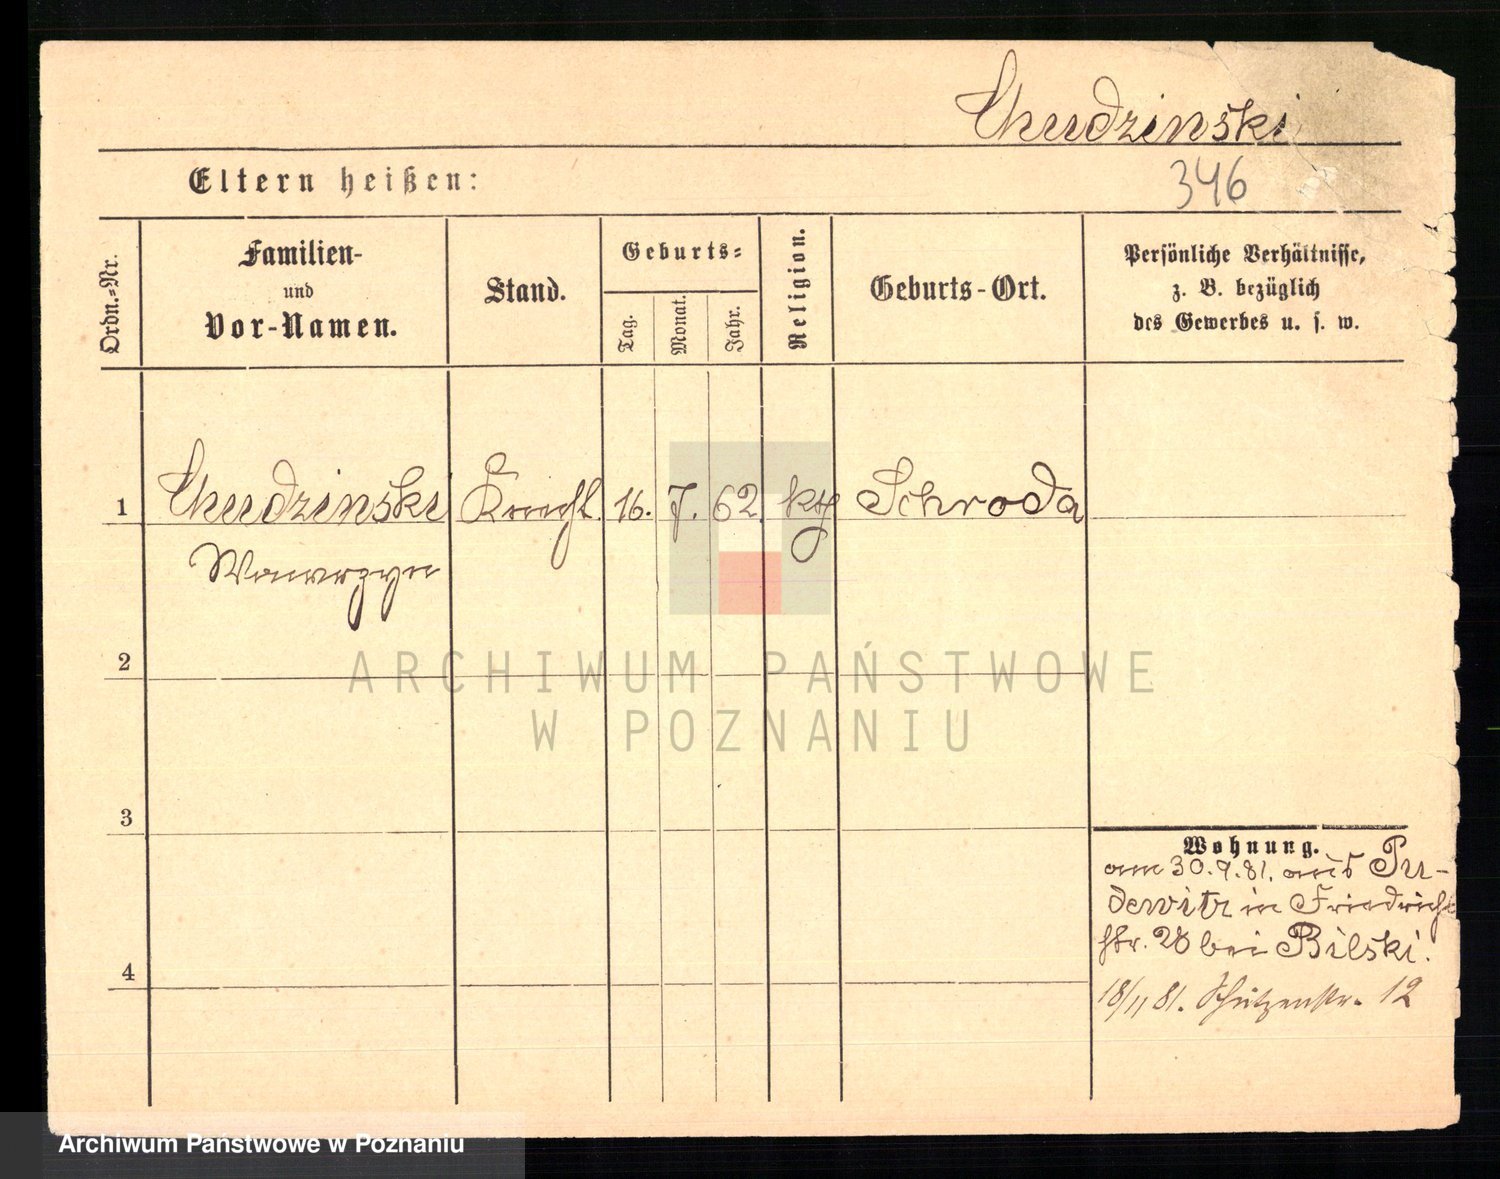 Chudzinski
Eltern heißen:
346
Ordn.-Nr.
Familien-
und
Vor-Namen.
Stand.
Geburts-
Tag.
Monat.
Jahr.
Religion.
Geburts-Ort.
Persönliche Verhältnisse,
z. B. bezüglich
des Gewerbes u. s. w.
1 Chudzinski Knecht 16. 7. 62. kth Schroda
Wawrzyn
2
3
4
Wohnung.
am 30.9.81. aus Pu-
dewitz in Friedrichs
str. 28 bei Bilski.
18/11 81. Schützenstr. 12
ARCHIWUM PAŃSTWOWE
W POZNANIU
Archiwum Państwowe w Poznaniu